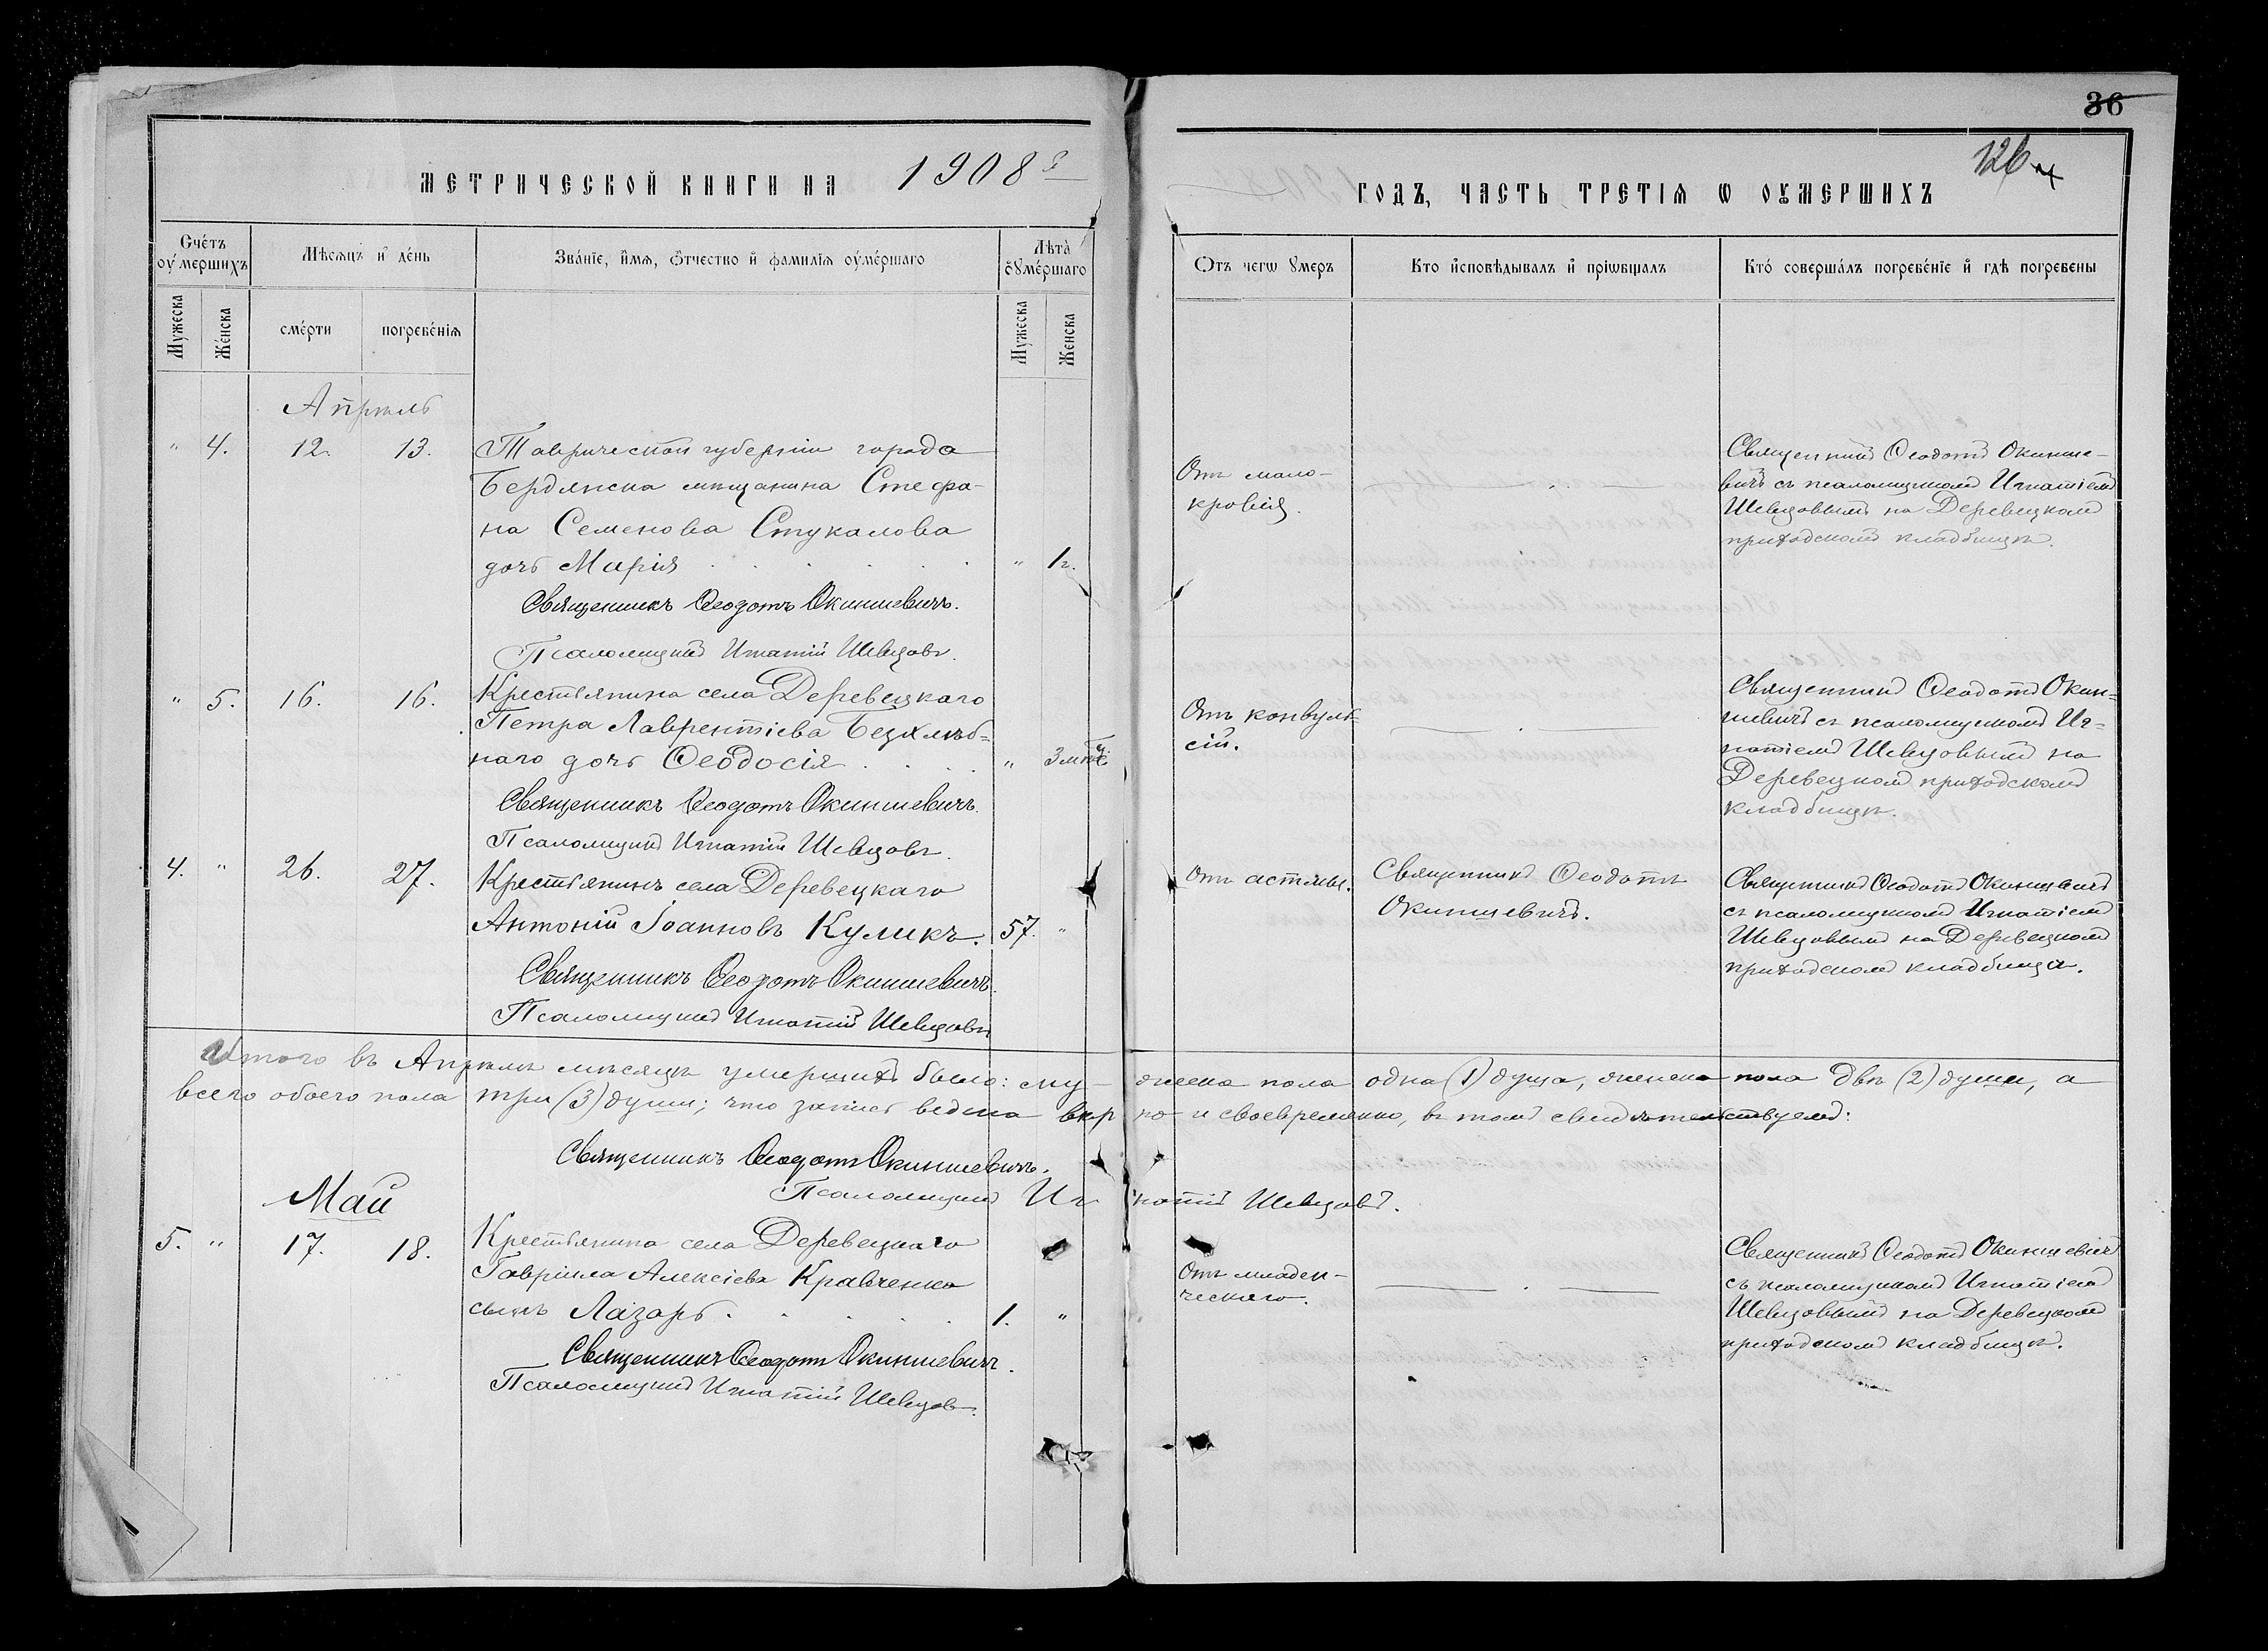 36
126
МЕТРИЧЕСКОЙ КНИГИ НА 1908 г
ГОДЪ, ЧАСТЬ ТРЕТІЯ Ѡ ОУМЕРШИХЪ
Счетъ оумершихъ
Мѣсяцъ и день
Званіе, имя, отчество и фамилія оумершаго
Лѣта оумершаго
Отъ чегѡ умеръ
Кто исповѣдывалъ и пріѡбщалъ
Кто совершалъ погребеніе и гдѣ погребены
Мужеска
Женска
смерти
погребенія
Мужеска
Женска
Апрѣль
" 4. 12. 13. Таврической губерніи города
Бердянска мѣщанина Стефа-
на Семенова Стукалова
дочь Марія " 1 г.
Священникъ Ѳеодотъ Окиншевичъ.
Псаломщикъ Игнатій Шевцовъ.
Отъ мало-
кровія.
Священникъ Ѳеодотъ Окинше-
вичъ съ псаломщикомъ Игнатіемъ
Шевцовымъ на Деревецкомъ
приходскомъ кладбищѣ.
" 5. 16. 16. Крестьянина села Деревецкаго
Петра Лаврентіева Безхлѣб-
наго дочь Ѳеодосія "
Священникъ Ѳеодотъ Окиншевичъ.
Псаломщикъ Игнатій Шевцовъ.
Отъ конвуль-
сій.
Священникъ Ѳеодотъ Окин-
шевичъ съ псаломщикомъ Иг-
натіемъ Шевцовымъ на
Деревецкомъ приходскомъ
кладбищѣ.
4. " 26. 27. Крестьянинъ села Деревецкаго
Антоній Іоанновъ Куликъ. 57. "
Священникъ Ѳеодотъ Окиншевичъ.
Псаломщикъ Игнатій Шевцовъ
Отъ астмы.
Священникъ Ѳеодотъ
Окиншевичъ.
Священникъ Ѳеодотъ Окиншевичъ
съ псаломщикомъ Игнатіемъ
Шевцовымъ на Деревецкомъ
приходскомъ кладбищѣ.
Итого въ Апрѣлѣ мѣсяцѣ умершихъ было: му- жеска пола одна (1) душа, женска пола двѣ (2) души, а
всего обоего пола три (3) души; что запись ведена вѣр но и своевременно, въ томъ свидѣтельствуемъ:
Священникъ Ѳеодотъ Окиншевичъ.
Псаломщикъ Иг натій Шевцовъ.
Май
5. " 17. 18. Крестьянина села Деревецкаго
Гавріила Алексіева Кравченко
сынъ Лазарь. 1. "
Священникъ Ѳеодотъ Окиншевичъ.
Псаломщикъ Игнатій Шевцовъ.
Отъ младен-
ческаго.
Священникъ Ѳеодотъ Окиншевичъ
съ псаломщикомъ Игнатіемъ
Шевцовымъ на Деревецкомъ
приходскомъ кладбищѣ.